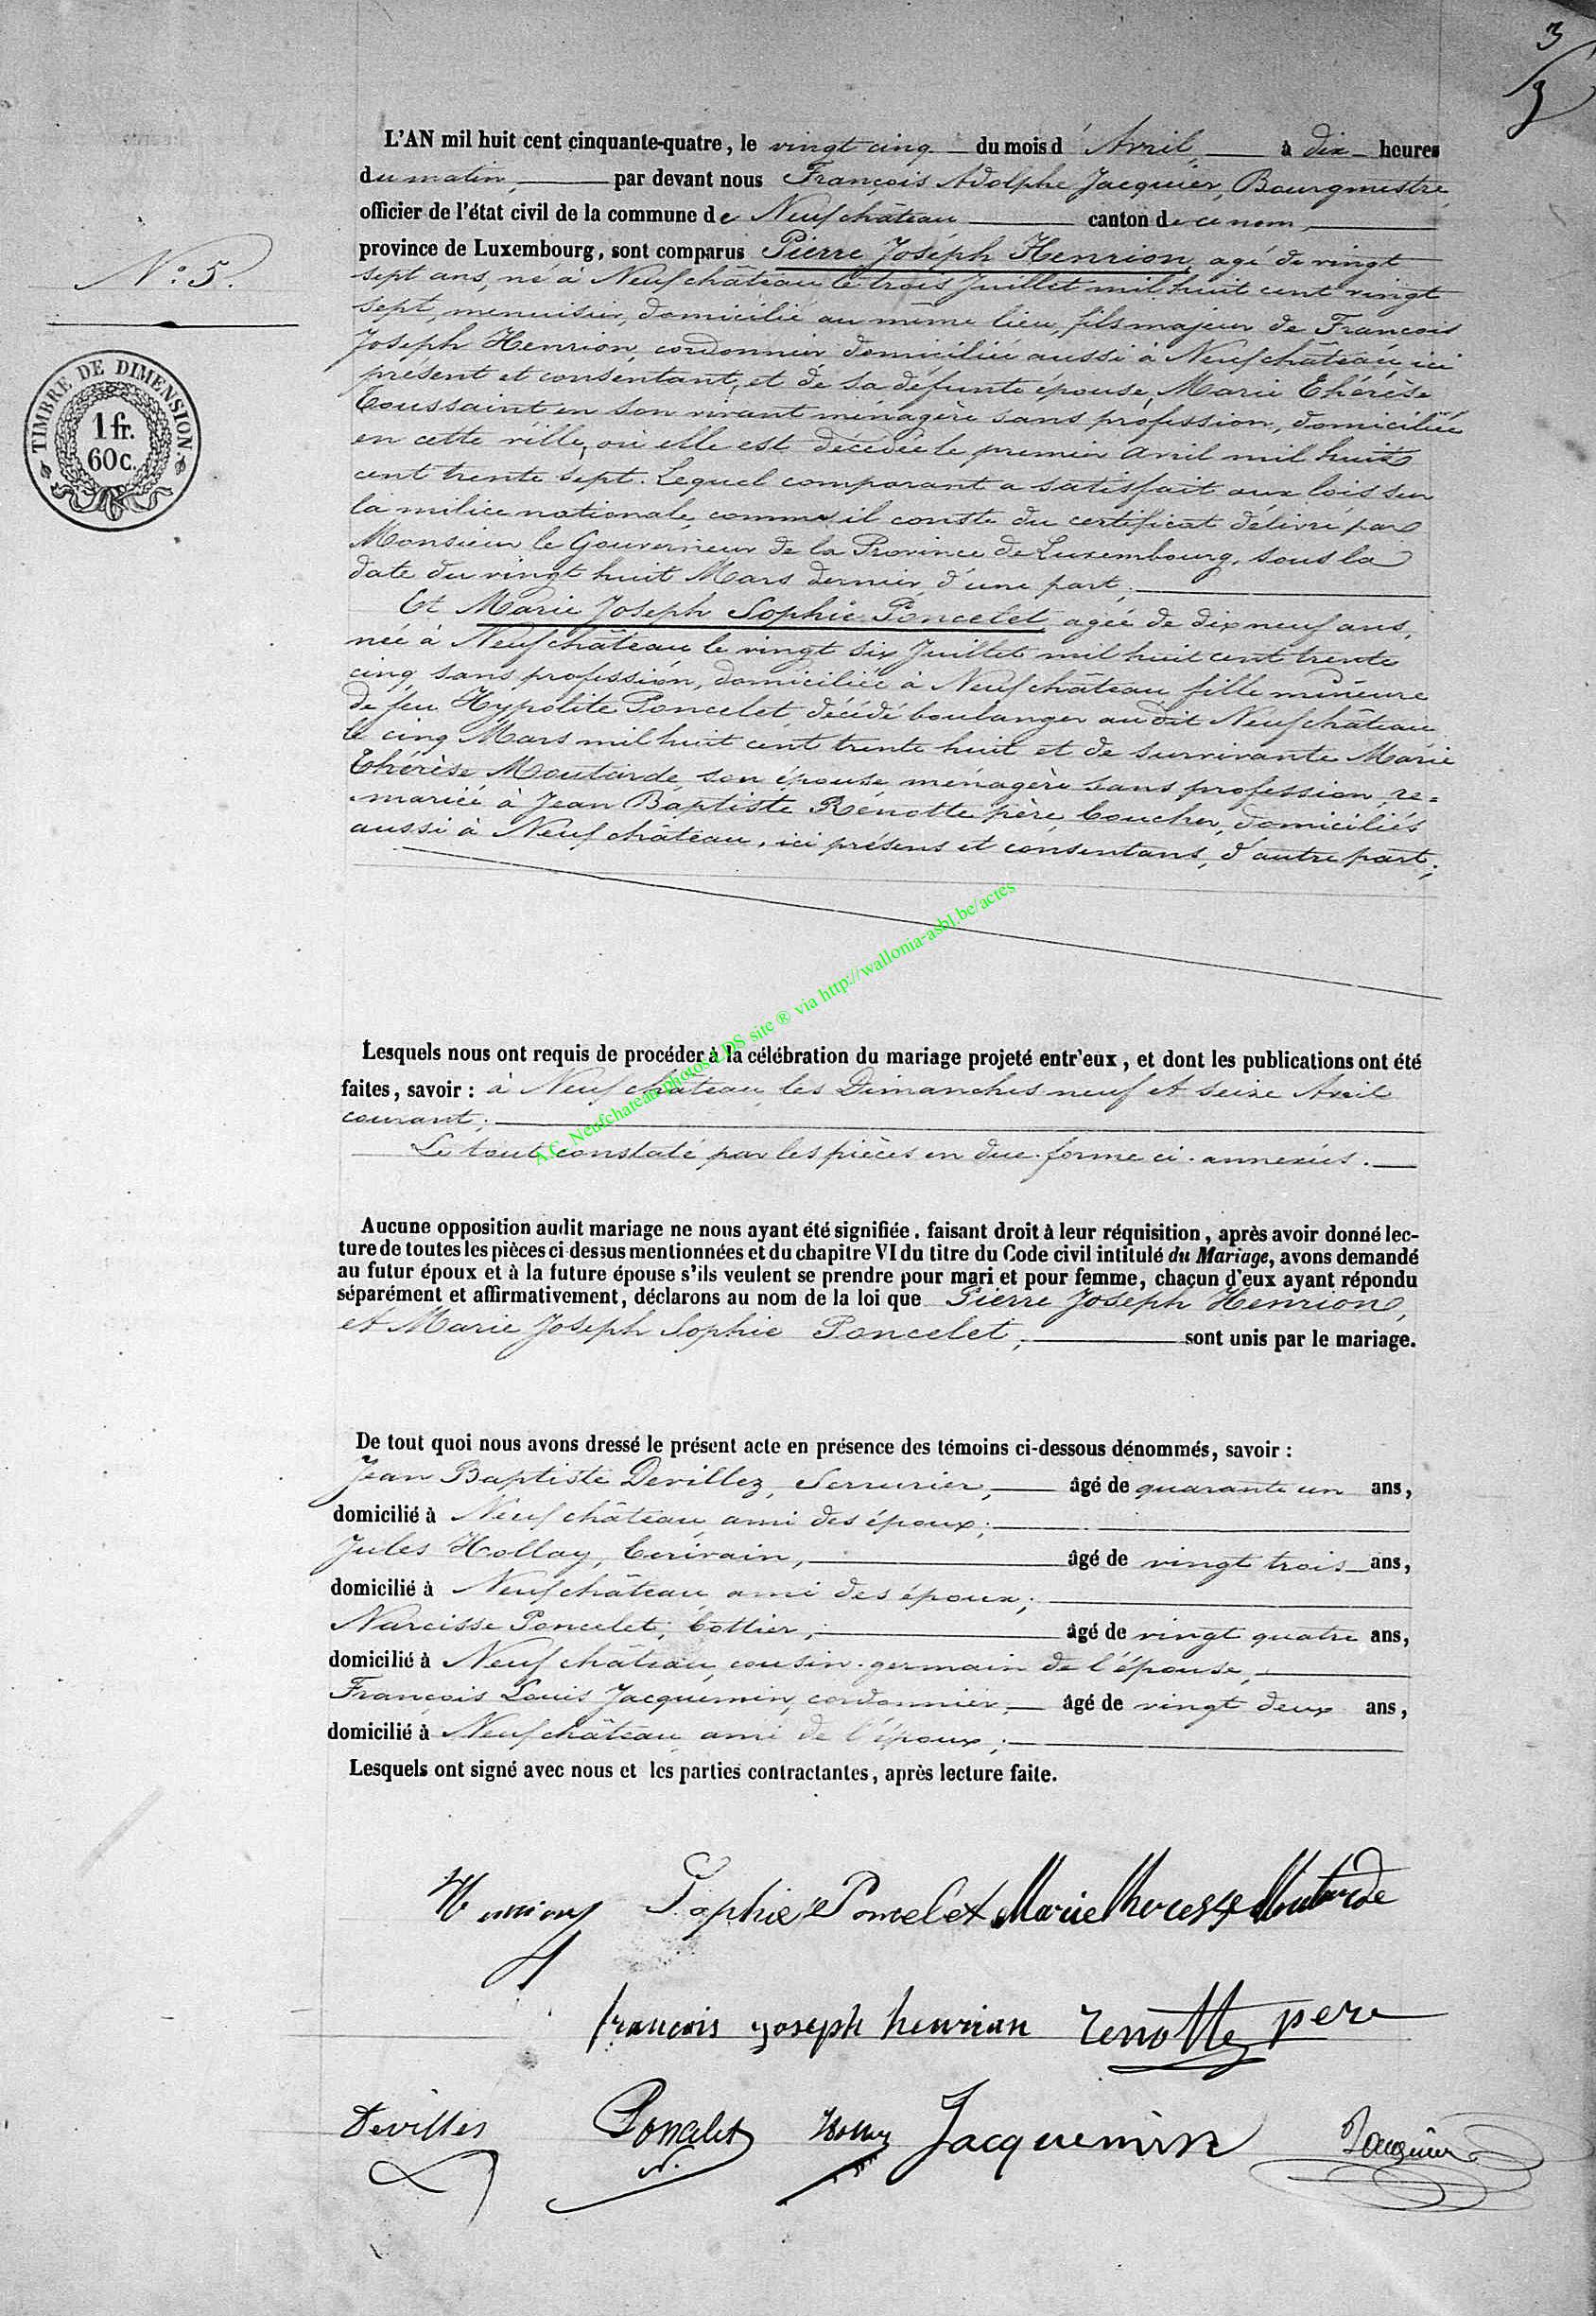 3
9
L'AN mil huit cent cinquante-quatre, le vingt cinq du mois d'Avril, à dix heures
du matin, par devant nous François Adolphe Jacquier, Bourgmestre,
officier de l'état civil de la commune de Neufchâteau canton de ce nom,
province de Luxembourg, sont comparus Pierre Joseph Henrion, agé de vingt
N.o 5.
sept ans, né à Neufchâteau le trois Juillet mil huit cent vingt
sept, menuisier, domicilié au même lieu, fils majeur de François
Joseph Henrion, cordonnier domiciliée aussi à Neufchâteau, ici
présent et consentant, et de sa défunte épouse, Marie Thérèse
Toussaint en son vivant ménagère sans profession, domiciliée
en cette ville, où elle est décédée le premier avril mil huit
cent trente sept. Lequel comparant a satisfait aux lois sur
la milice nationale, comme il conste du certificat délivré par
Monsieur le Gouverneur de la Province de Luxembourg, sous la
date du vingt huit Mars dernier, d'une part;
TIMBRE DE DIMENSION.
1 fr.
60 c.
Et Marie Joseph Sophie Poncelet, agée de dix neuf ans,
née à Neufchâteau le vingt six Juillet mil huit cent trente
cinq, sans profession, domiciliée à Neufchâteau fille mineure
de feu Hypolite Poncelet, décédé boulanger au dit Neufchâteau
le cinq Mars mil huit cent trente huit et de survivante Marie
Thérèse Moutarde, son épouse, ménagère sans profession, re=
mariée à Jean Baptiste Rénotte père, boucher, domiciliés
aussi à Neufchâteau, ici présens et consentans, d'autre part;
A.C. Neufchateau photos LDS site ® via http://wallonia-asbl.be/actes
Lesquels nous ont requis de procéder à la célébration du mariage projeté entr'eux, et dont les publications ont été
faites, savoir : à Neufchâteau, les Dimanches neuf et seize Avril
courant;
Le tout constaté par les pièces en due forme ci-annexées.
Aucune opposition audit mariage ne nous ayant été signifiée, faisant droit à leur réquisition, après avoir donné lec-
ture de toutes les pièces ci-dessus mentionnées et du chapitre VI du titre du Code civil intitulé du Mariage, avons demandé
au futur époux et à la future épouse s'ils veulent se prendre pour mari et pour femme, chacun d'eux ayant répondu
séparément et affirmativement, déclarons au nom de la loi que Pierre Joseph Henrion,
et Marie Joseph Sophie Poncelet, sont unis par le mariage.
De tout quoi nous avons dressé le présent acte en présence des témoins ci-dessous dénommés, savoir :
Jean Baptiste Devillez, Serrurier, âgé de quarante un ans,
domicilié à Neufchâteau, ami des époux;
Jules Hollay, Ecrivain, âgé de vingt trois ans,
domicilié à Neufchâteau, ami des époux;
Narcisse Poncelet, Bottier, âgé de vingt quatre ans,
domicilié à Neufchâteau, cousin-germain de l'épouse,
François Louis Jacquemin, cordonnier, âgé de vingt deux ans,
domicilié à Neufchâteau, ami de l'époux;
Lesquels ont signé avec nous et les parties contractantes, après lecture faite.
Henrion Sophie Poncelet Marie therese Mutarde
francois joseph henrion renotte pere
Devillez Poncelet N. Hollay Jacquemin Jacquier